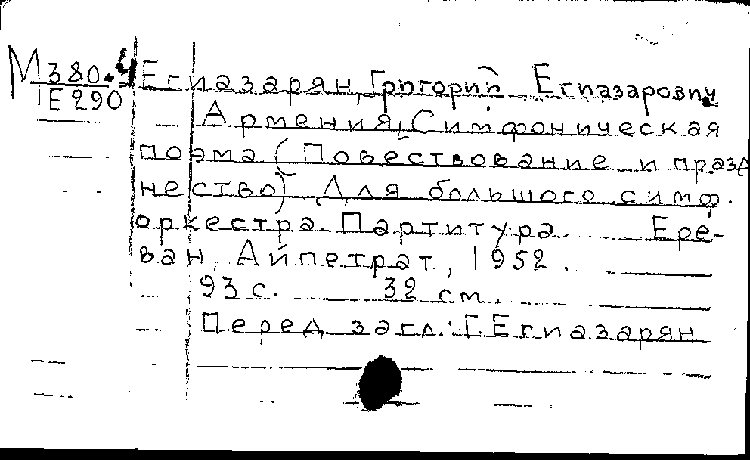 М380.4 Егиазарян, Григорий Егиазарович
Е290
Армения, Симфоническая
поэма (Повествование и празд
нество) Для большого симф.
оркестра. Партитура. Ере-
ван, Айпетрат, 1952.
93 с. 32 см.
Перед загл.: Г. Егиазарян